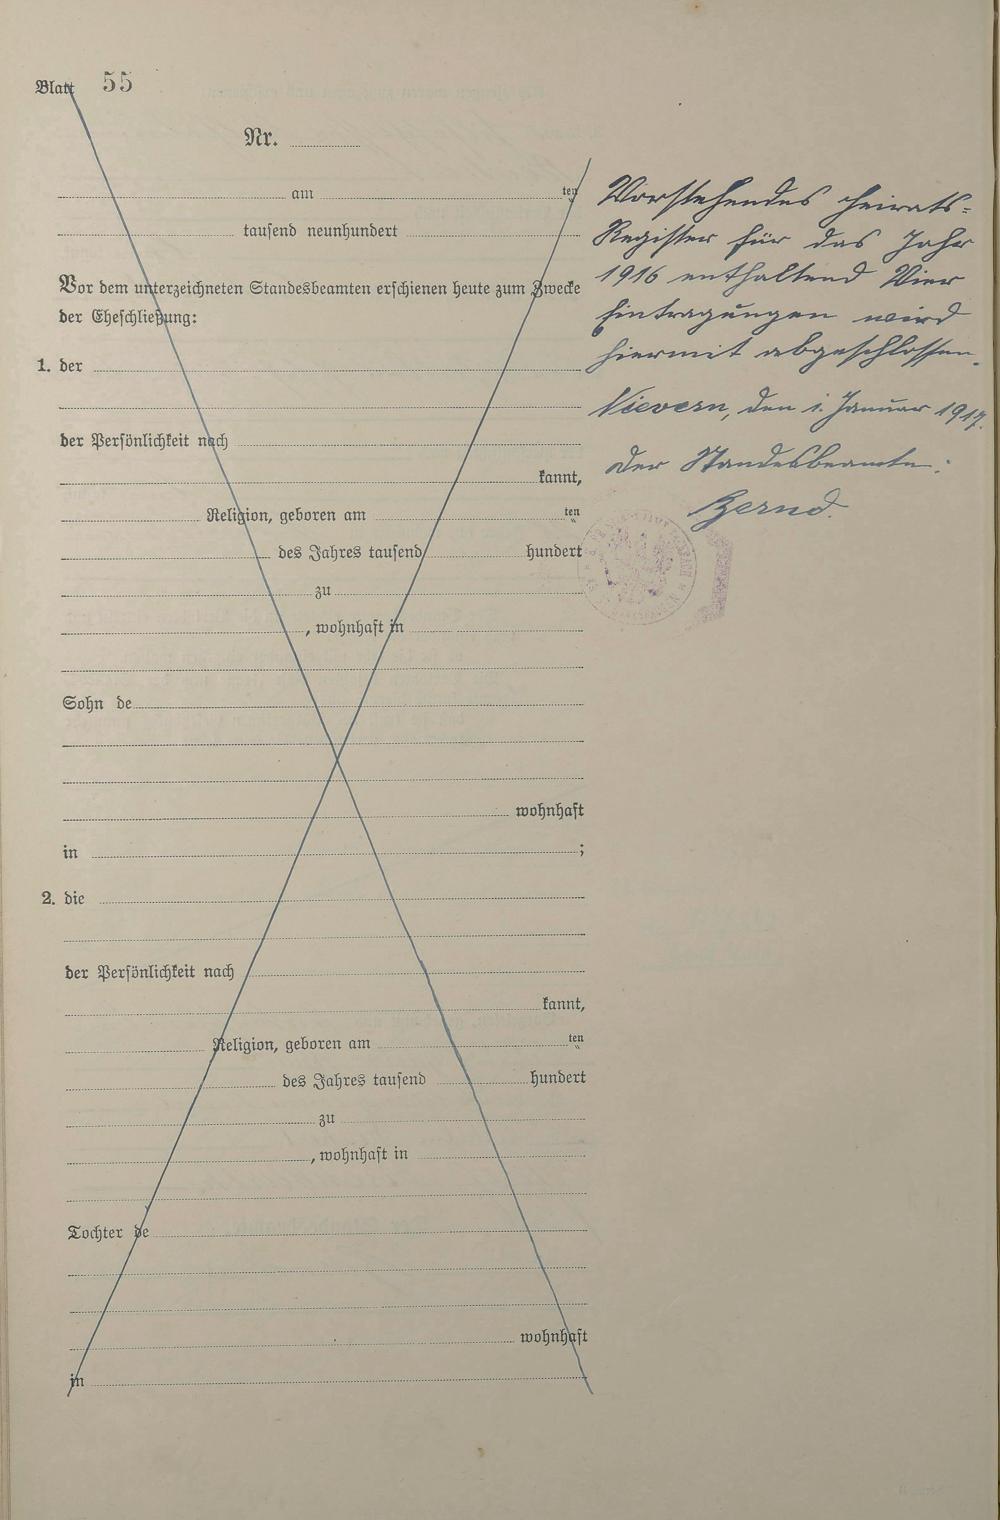 Blatt 55
Nr.
am ten
tausend neunhundert
Vor dem unterzeichneten Standesbeamten erschienen heute zum Zwecke
der Eheschließung:
1. der
der Persönlichkeit nach
kannt,
Religion, geboren am ten
des Jahres tausend hundert
zu
, wohnhaft in
Sohn de
wohnhaft
in ;
2. die
der Persönlichkeit nach
kannt,
Religion, geboren am ten
des Jahres tausend hundert
zu
, wohnhaft in
Tochter de
wohnhaft
in
Vorstehendes Heirats-
Register für das Jahr
1916 enthaltend Vier
Eintragungen wird
hiermit abgeschlossen.
Nievern, den 1. Januar 1917.
Der Standesbeamte:
Bernd.